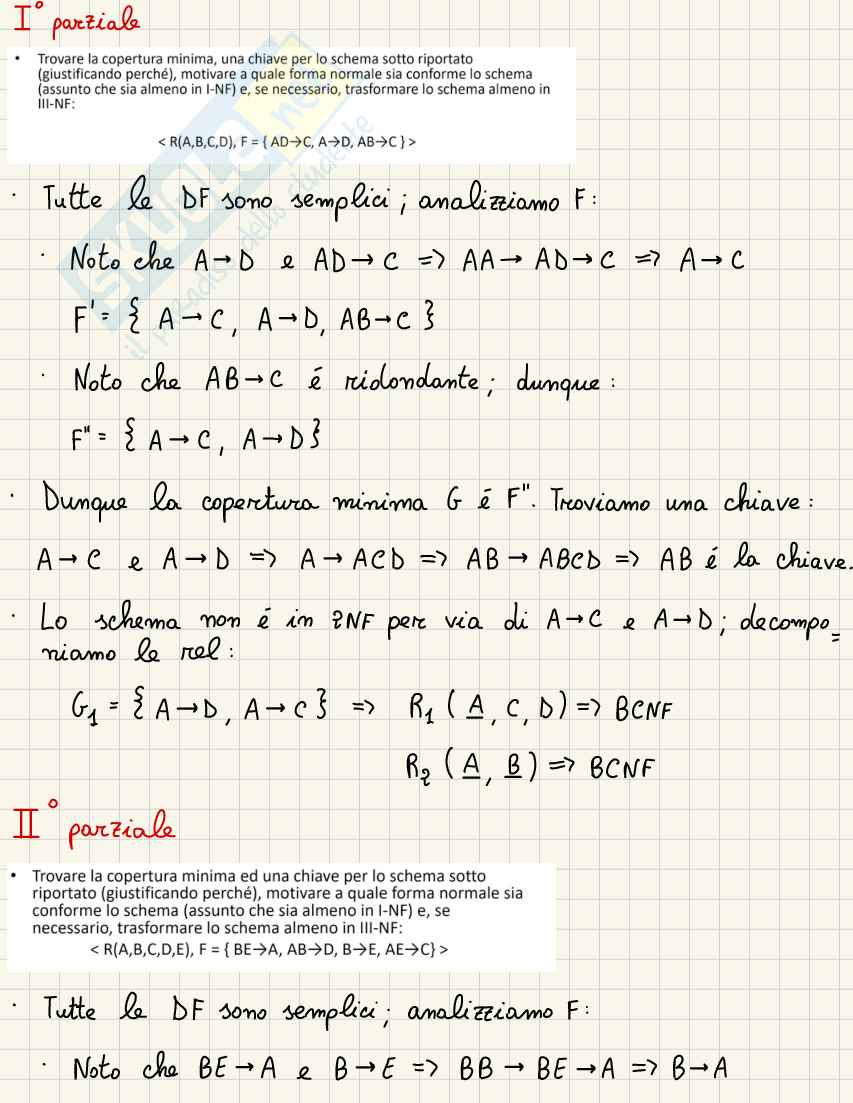 I° parziale
• Trovare la copertura minima, una chiave per lo schema sotto riportato
(giustificando perché), motivare a quale forma normale sia conforme lo schema
(assunto che sia almeno in I-NF) e, se necessario, trasformare lo schema almeno in
III-NF:
< R(A,B,C,D), F = { AD→C, A→D, AB→C } >
SKUOLA.net
il paradiso dello studente
· Tutte le DF sono semplici; analizziamo F:
· Noto che A→D e AD→C => AA→AD→C => A→C
F' = { A→C, A→D, AB→C }
· Noto che AB→C é ridondante; dunque:
F" = { A→C, A→D }
· Dunque la copertura minima G é F". Troviamo una chiave:
A→C e A→D => A→ACD => AB→ABCD => AB é la chiave.
· Lo schema non é in 2NF per via di A→C e A→D; decompo=
niamo le rel:
G1 = { A→D, A→C } => R1 (A, C, D) => BCNF
R2 (A, B) => BCNF
II° parziale
• Trovare la copertura minima ed una chiave per lo schema sotto
riportato (giustificando perché), motivare a quale forma normale sia
conforme lo schema (assunto che sia almeno in I-NF) e, se
necessario, trasformare lo schema almeno in III-NF:
< R(A,B,C,D,E), F = { BE→A, AB→D, B→E, AE→C} >
· Tutte le DF sono semplici; analizziamo F:
· Noto che BE→A e B→E => BB→BE→A => B→A